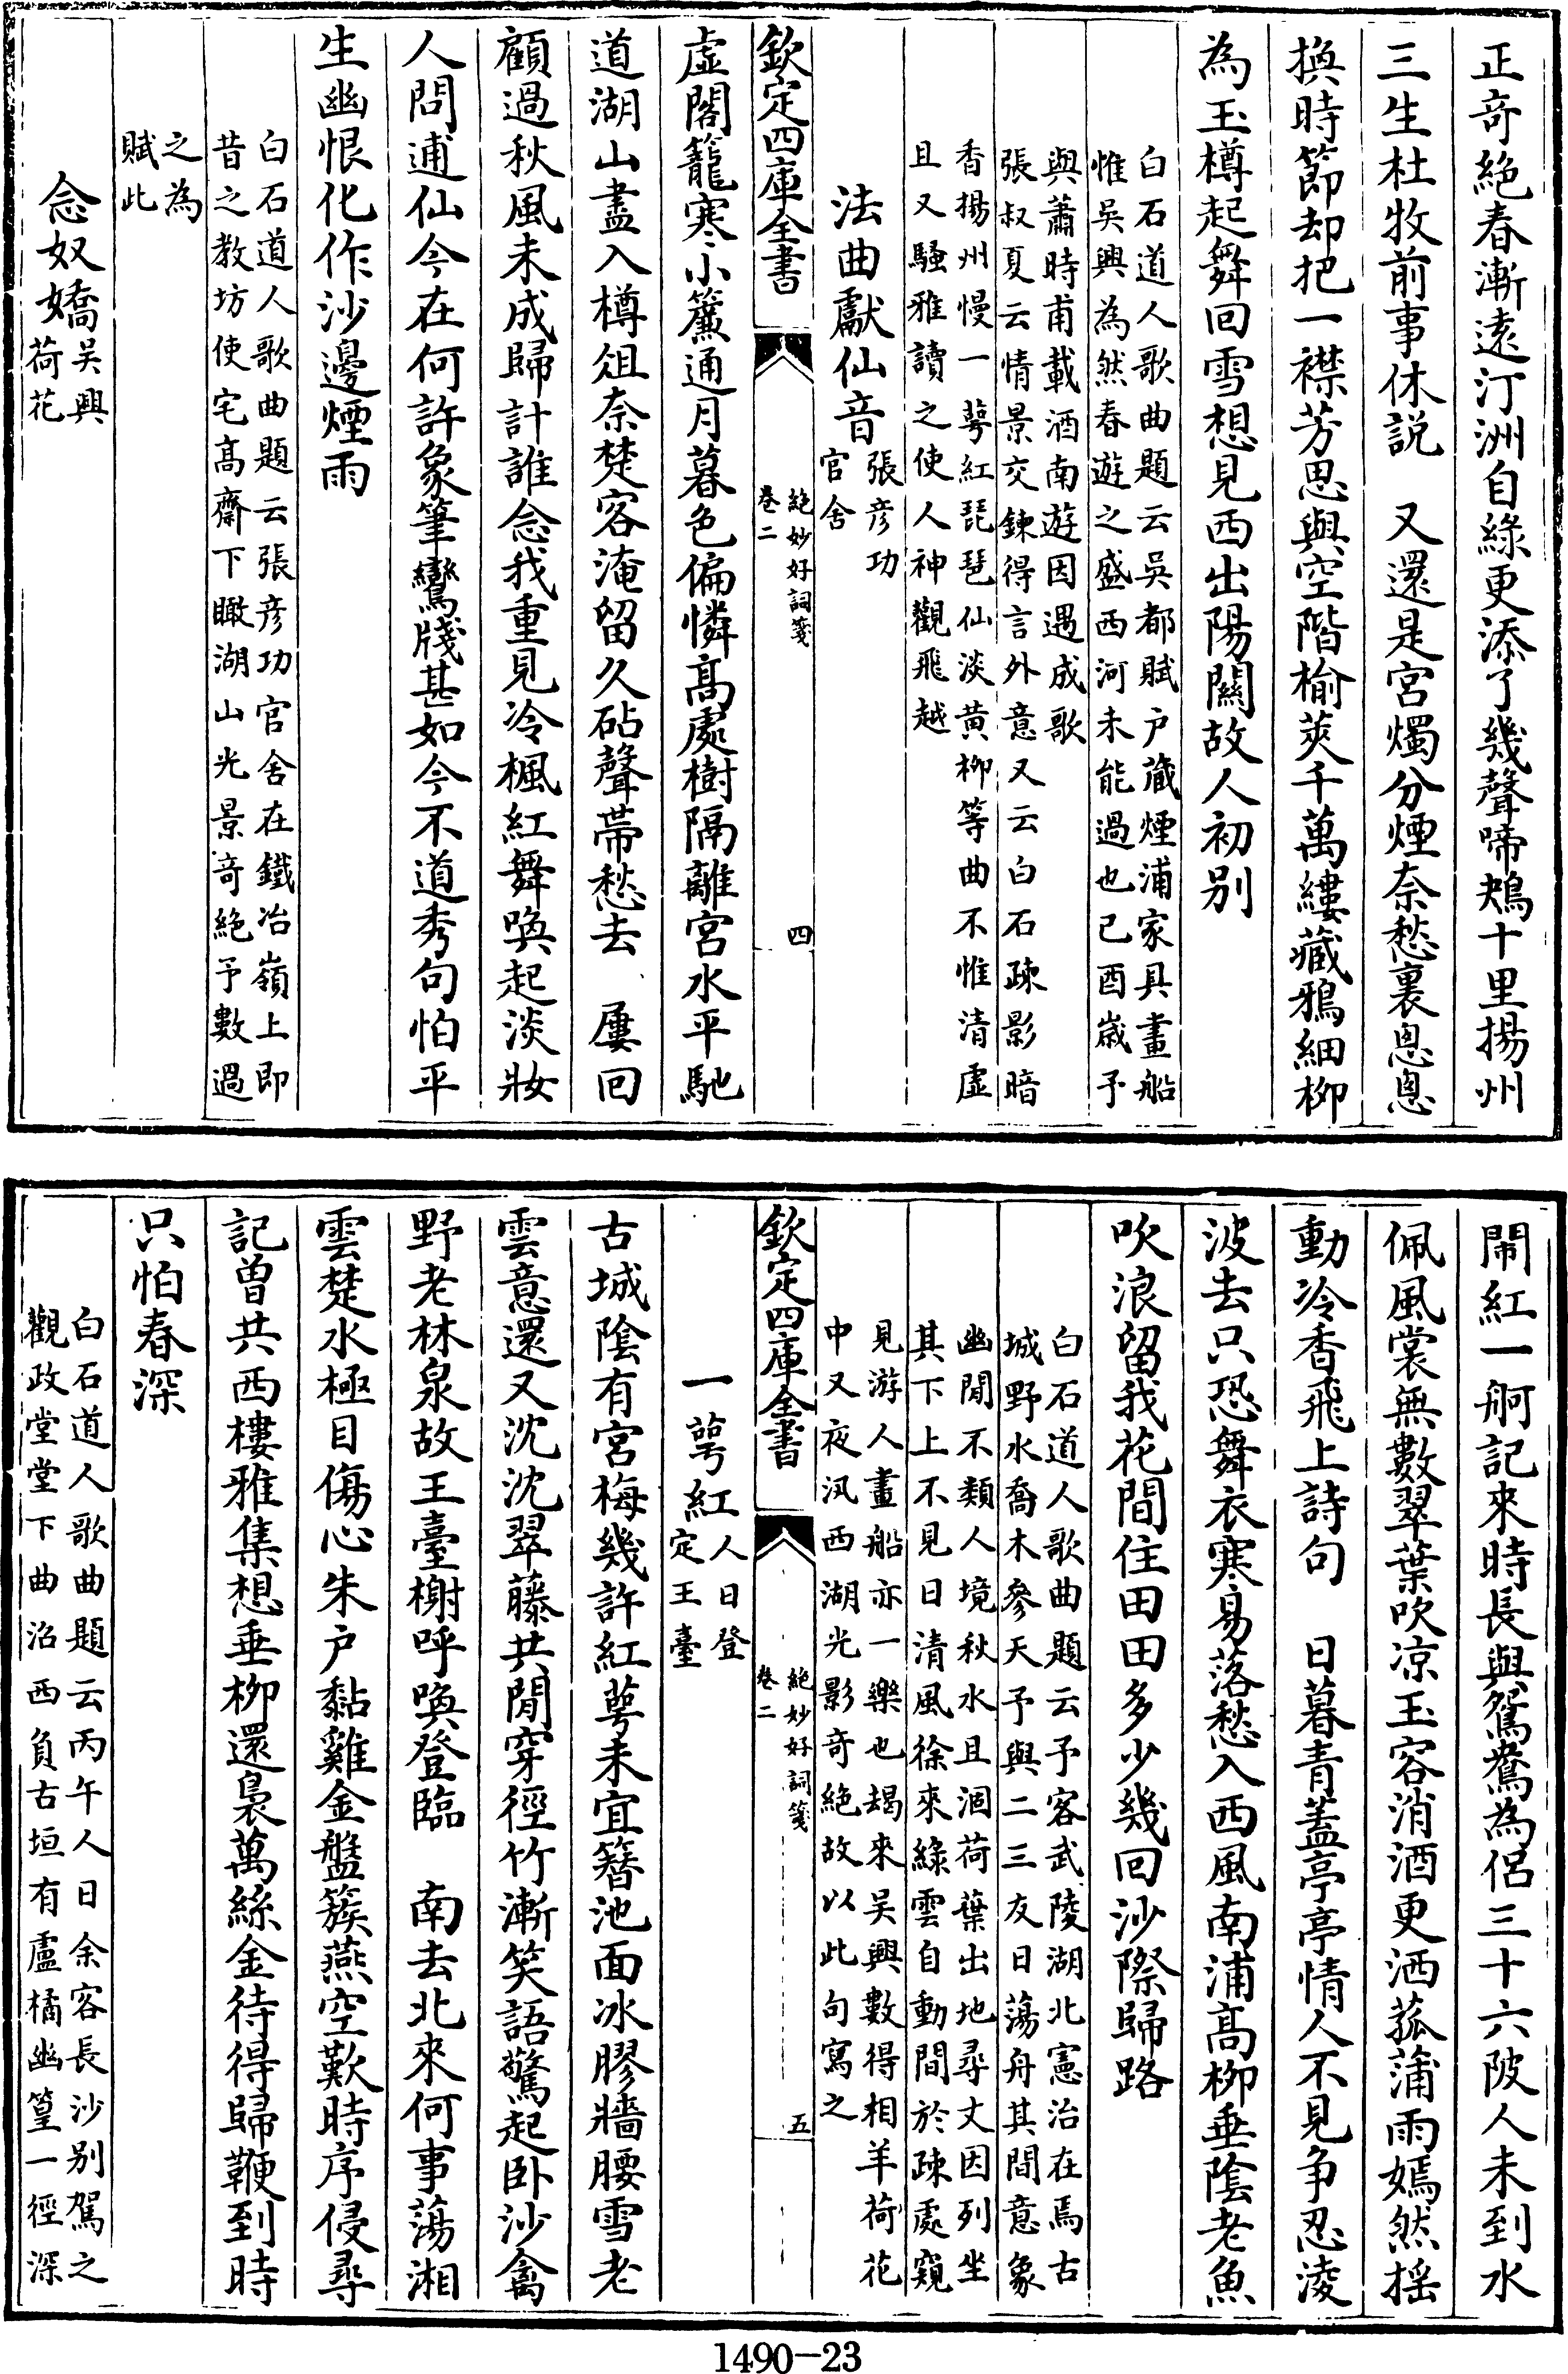 正奇絶春漸遠汀洲自綠更添了幾聲啼鴂十里揚州
三生杜牧前事休説　又還是宮燭分煙奈愁裏恖恖
換時節却把一襟芳思與空階榆莢千萬縷藏鴉細柳
為玉樽起舞回雪想見西出陽關故人初别
白石道人歌曲題云吳都賦户藏煙浦家具畫船
惟吳興為然春遊之盛西河未能過也己酉歲予
與蕭時甫載酒南遊因遇成歌
張叔夏云情景交鍊得言外意又云白石疎影暗
香揚州慢一萼紅琵琶仙淡黄栁等曲不惟清虚
且又騷雅讀之使人神觀飛越
法曲獻仙音張彦功
官舍
欽定四庫全書
絶妙好詞箋
卷二
四
虚閣籠寒小簾通月暮色偏憐髙處樹隔離宮水平馳
道湖山盡入樽俎奈楚客淹留久砧聲帶愁去　屢回
顧過秋風未成歸計誰念我重見冷楓紅舞喚起淡妝
人問逋仙今在何許象筆鸞牋甚如今不道秀句怕平
生幽恨化作沙邊煙雨
白石道人歌曲題云張彦功官舍在鐵冶嶺上即
昔之教坊使宅髙齋下瞰湖山光景奇絶予數過
之為
賦此
念奴嬌吳興
荷花
鬧紅一舸記來時長與鴛鴦為侶三十六陂人未到水
佩風裳無數翠葉吹凉玉容消酒更洒菰蒲雨嫣然摇
動冷香飛上詩句　日暮青蓋亭亭情人不見争忍淩
波去只恐舞衣寒易落愁入西風南浦髙柳垂陰老魚
吹浪留我花間住田田多少幾回沙際歸路
白石道人歌曲題云予客武陵湖北憲治在焉古
城野水喬木參天予與二三友日蕩舟其間意象
幽閒不類人境秋水且涸荷葉出地尋丈因列坐
其下上不見日清風徐來綠雲自動間於疎處窺
見游人畫船亦一樂也朅來吳興數得相羊荷花
中又夜汎西湖光影奇絶故以此句寫之
欽定四庫全書
絶妙好詞箋
卷二
五
一萼紅人日登
定王臺
古城陰有宮梅幾許紅萼未宜簪池面冰膠牆腰雪老
雲意還又沈沈翠藤共閒穿徑竹漸笑語驚起卧沙禽
野老林泉故王臺榭呼喚登臨　南去北來何事蕩湘
雲楚水極目傷心朱户黏雞金盤簇燕空歎時序侵尋
記曽共西樓雅集想垂柳還裊萬絲金待得歸鞭到時
只怕春深
白石道人歌曲題云丙午人日余客長沙别駕之
觀政堂堂下曲沼西負古垣有盧橘幽篁一徑深
1490-23